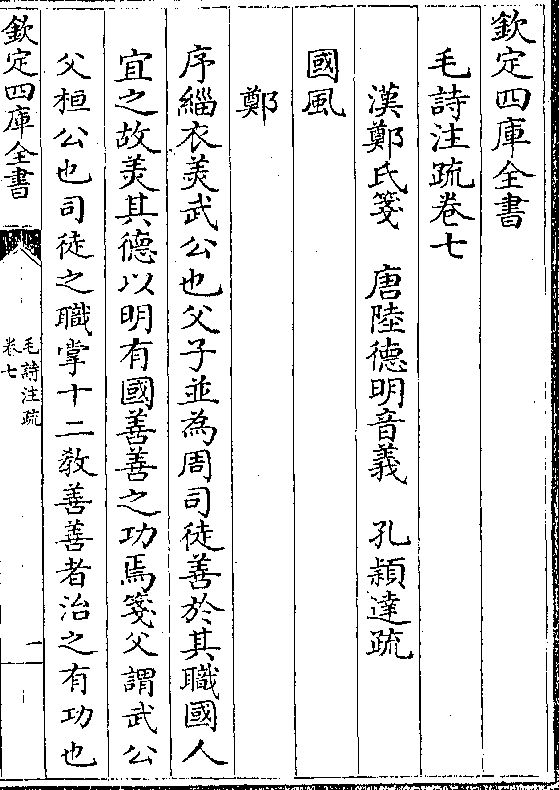 欽定四庫全書
毛詩注疏卷七
漢鄭氏箋　唐陸德明音義　孔穎達疏
國風
鄭
序緇衣美武公也父子並為周司徒善於其職國人
宜之故美其德以明有國善善之功焉箋父謂武公
父桓公也司徒之職掌十二教善善者治之有功也
欽定四庫全書
毛詩注疏
卷七
一